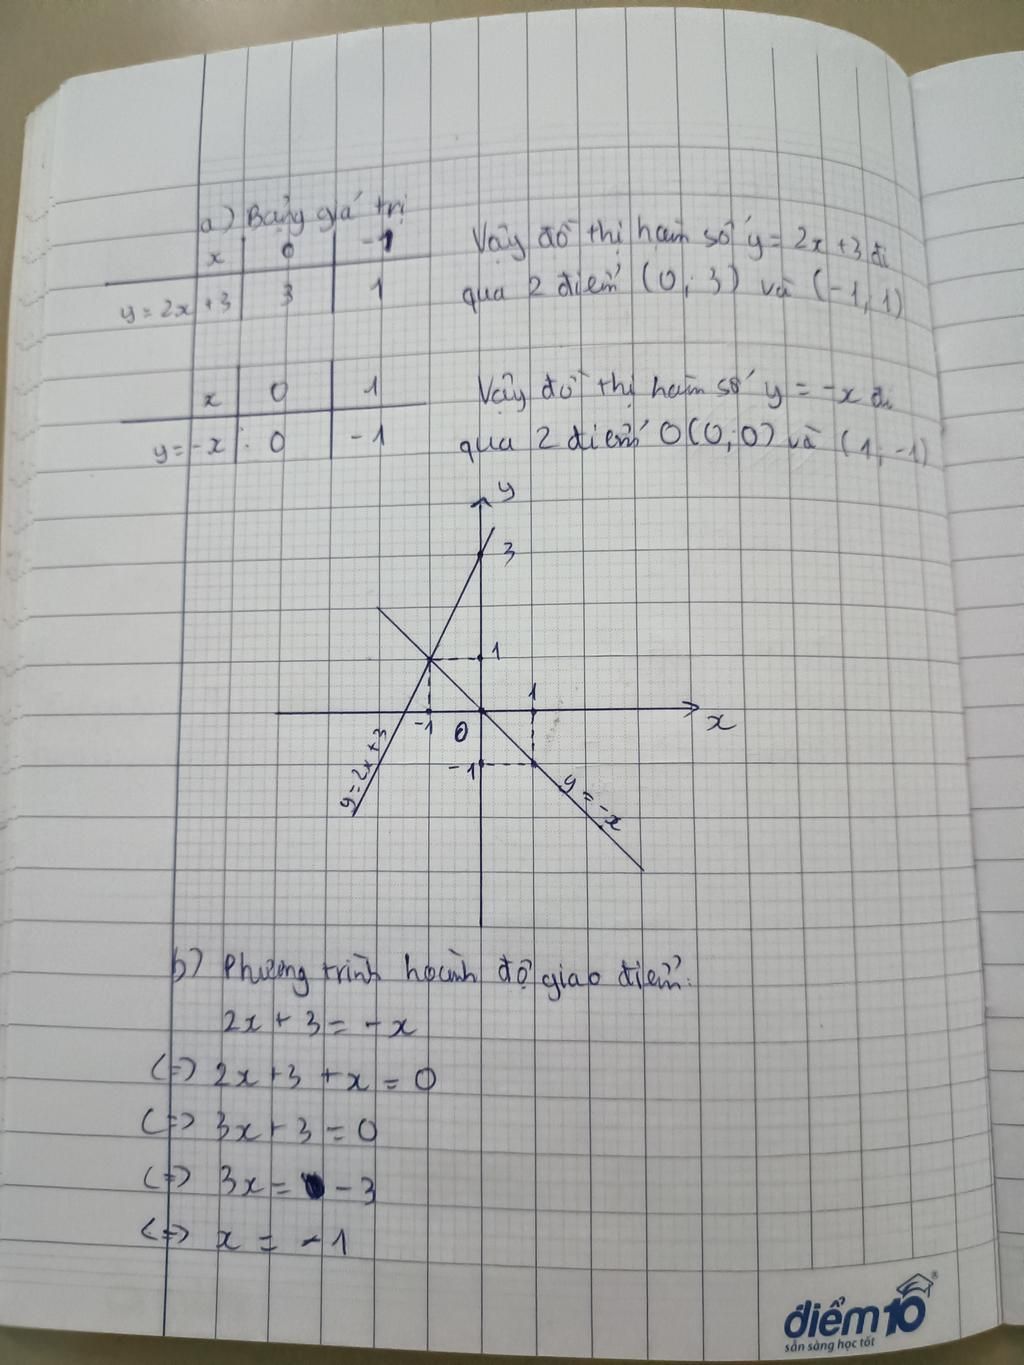 a) Bảng giá trị
x 0 -1
y = 2x + 3 3 1
Vậy đồ thị hàm số y = 2x + 3 đi
qua 2 điểm (0; 3) và (-1; 1)
x 0 1
y = -x 0 -1
Vậy đồ thị hàm số y = -x đi
qua 2 điểm O(0; 0) và (1; -1)
y
3
1
1
-1
O
x
-1
y = 2x + 3
y = -x
b) Phương trình hoành độ giao điểm:
2x + 3 = -x
(=) 2x + 3 + x = 0
(=) 3x + 3 = 0
(=) 3x = -3
(=) x = -1
điểm 10
sẵn sàng học tốt